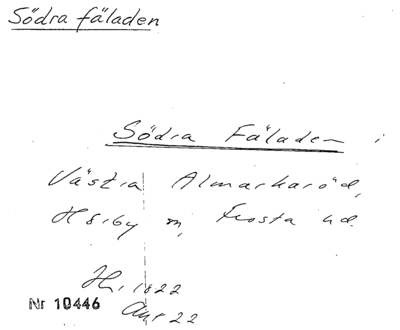 Södra fäladen
Södra Fäladen i
Västra Almarkaröd,
Hörby sn, Frosta hd.
1822
Nr 10446
22